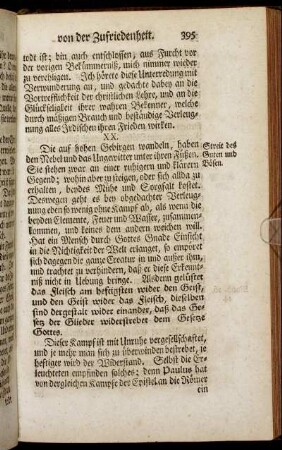 von der Zufriedenheit. 395
todt ist; bin auch entschlossen, aus Furcht vor
der vorigen Bekümmerniß, mich nimmer wieder
zu verehligen. Ich hörete diese Unterredung mit
Verwunderung an, und gedachte dabey an die
Vortrefflichkeit der christlichen Lehre, und an die
Glückseligkeit ihrer wahren Bekenner, welche
durch mäßigen Brauch und beständige Verleug-
nung alles Irdischen ihren Frieden wirken.
XX.
Die auf hohen Gebirgen wandeln, haben
den Nebel und das Ungewitter unter ihren Füßen.
Sie stehen zwar an einer ruhigern und klärern
Gegend; wohin aber zu steigen, oder sich allda zu
erhalten, beydes Mühe und Sorgfalt kostet.
Deswegen geht es bey obgedachter Verleug-
nung eben so wenig ohne Kampf ab, als wenn die
beyden Elemente, Feuer und Wasser, zusammen-
kommen, und keines dem andern weichen will.
Hat ein Mensch durch Gottes Gnade Einsicht
in die Nichtigkeit der Welt erlanget, so emporet
sich dagegen die ganze Creatur in und außer ihm,
und trachtet zu verhindern, daß er diese Erkennt-
niß nicht in Uebung bringe. Alsdenn gelüstet
das Fleisch am heftigsten wider den Geist,
und den Geist wider das Fleisch, dieselben
sind dergestalt wider einander, daß das Ge-
setz der Glieder widerstrebet dem Gesetze
Gottes.
Dieser Kampf ist mit Unruhe vergesellschaftet,
und je mehr man sich zu überwinden bestrebet, je
heftiger wird der Widerstand. Selbst die Er-
leuchteten empfinden solches; denn Paulus hat
von dergleichen Kampfe der Epistel an die Römer
ein
Streit des
Guten und
Bösen.